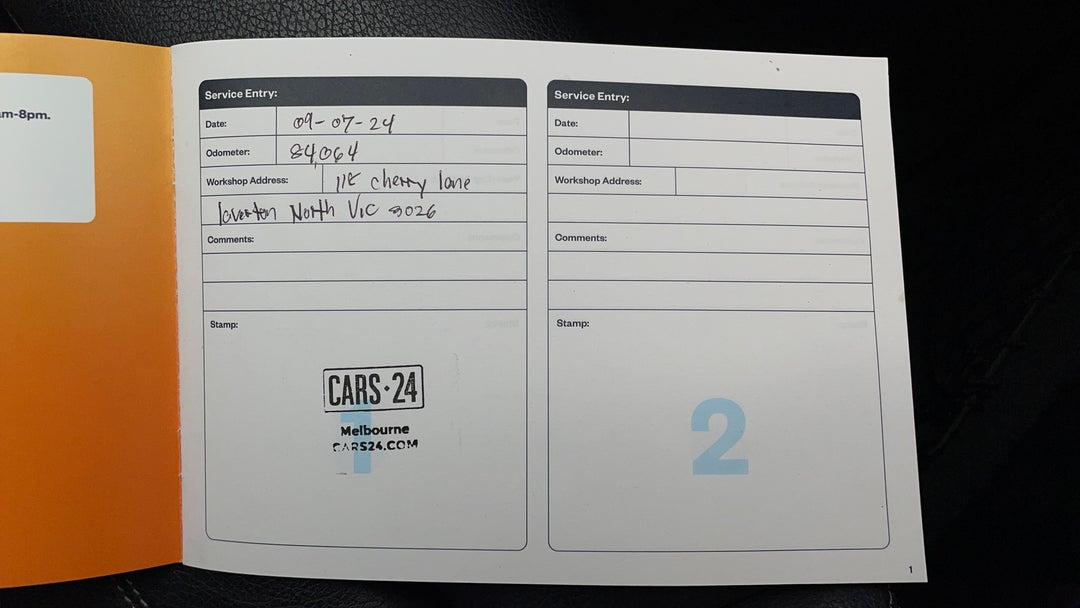 m-8pm.
Service Entry:
Date: 09-07-24
Odometer: 84,064
Workshop Address: cherry lane
laverton North Vic 3026
Comments:
Stamp:
CARS·24
Melbourne
CARS24.COM
1
Service Entry:
Date:
Odometer:
Workshop Address:
Comments:
Stamp:
2
1